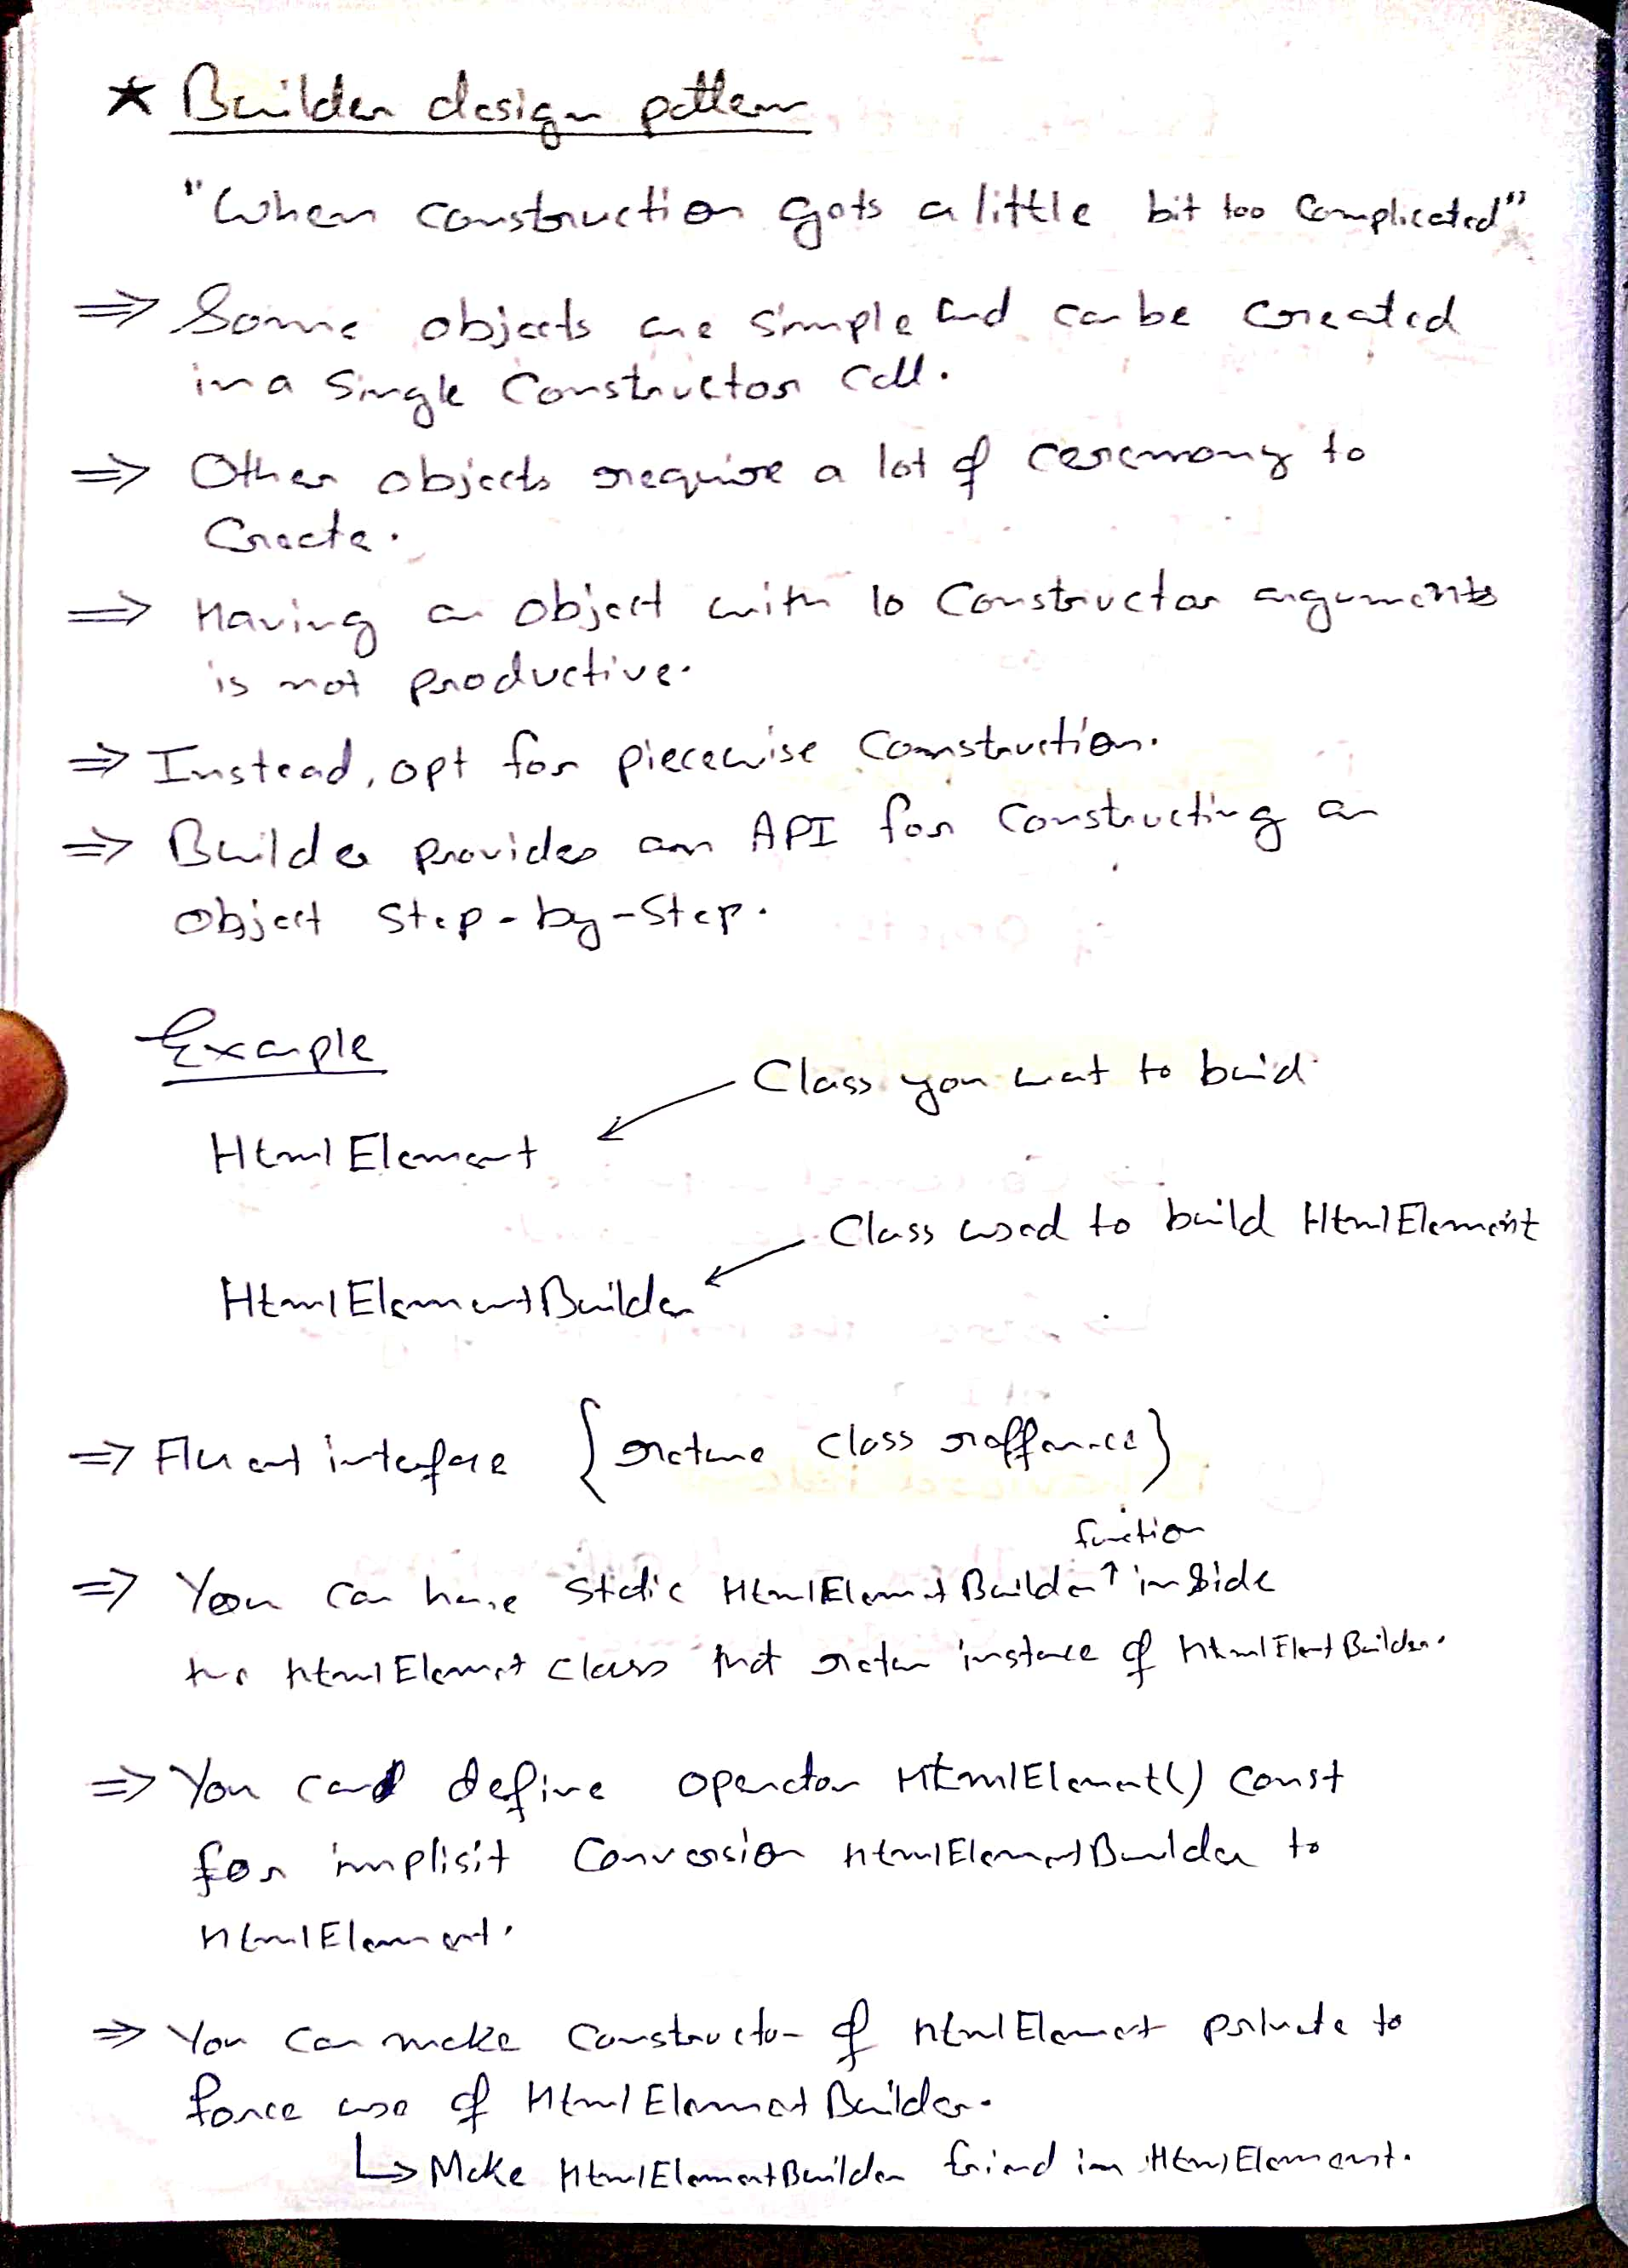 ★ Builder design pattern
"When construction gets a little bit too Complicated"
⇒ Some objects are simple and can be created
in a Single Constructor call.
⇒ Other objects require a lot of ceremony to
Create.
⇒ Having an object with 10 Constructor arguments
is not productive.
⇒ Instead, opt for piecewise Construction.
⇒ Builder provides an API for Constructing an
Object Step-by-Step.
Example
Class you want to buid
HtmlElement
Class used to build HtmlElement
HtmlElementBuilder
⇒ Fluent interface {return class refference}
function
⇒ You can have static HtmlElementBuilder ↑ inside
the HtmlElement class that return instance of HtmlElementBuilder.
⇒ You can define operator HtmlElement() const
for implisit Conversion HtmlElementBuilder to
HtmlElement.
⇒ You can make Constructor of HtmlElement private to
force use of HtmlElementBuilder.
↳ Make HtmlElementBuilder friend in HtmlElement.